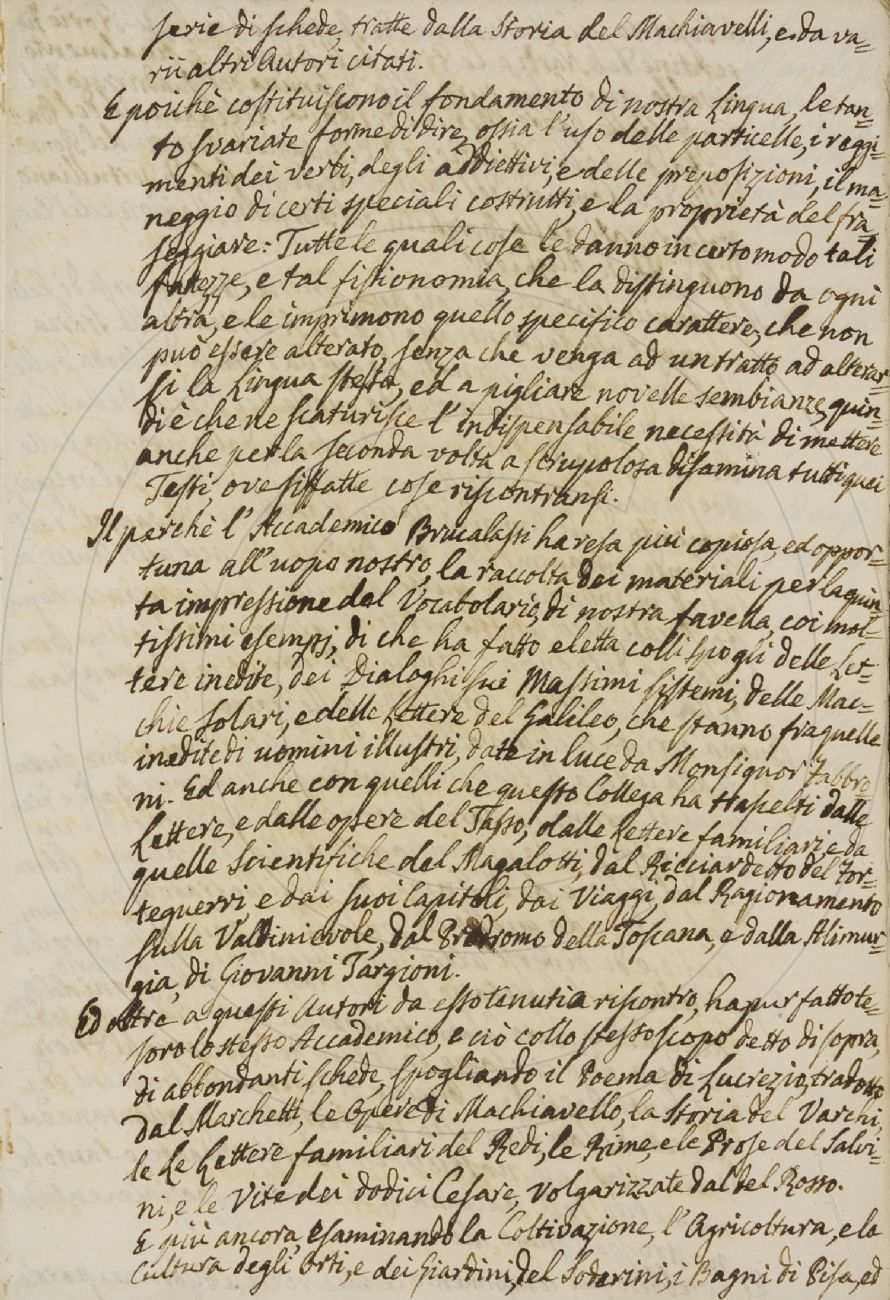 serie di schede, tratte dalla Storia del Machiavelli, e da va=
rii altri Autori citati.
E poichè costituiscono il fondamento di nostra Lingua, le tan=
to svariate forme di dire, ossia l'uso delle particelle, i reggi=
menti dei verbi, degli addiettivi, e delle preposizioni, il ma=
neggio di certi speciali costrutti, e la proprietà del fra=
seggiare: Tutte le quali cose le danno in certo modo tali
fattezze, e tal fisionomia, che la distinguono da ogni
altra, e le imprimono quello specifico carattere, che non
può essere alterato, senza che venga ad un tratto ad alterar=
si la Lingua stessa, ed a pigliare novelle sembianze, quin=
di è che ne scaturisce l'indispensabile necessità di mettere
anche per la seconda volta a scrupolosa disamina tutti quei
Testi, ove siffatte cose riscontransi.
Il perchè l'Accademico Brucalassi ha resa più copiosa, ed oppor=
tuna all'uopo nostro, la raccolta dei materiali per la quin=
ta impressione del Vocabolario, di nostra favella, coi mol=
tissimi esempj, di che ha fatto eletta colli spogli delle Let=
tere inedite, dei Dialoghi sui Massimi sistemi, delle Mac=
chie solari, e delle Lettere del Galileo, che stanno fra quelle
inedite di uomini illustri, date in luce da Monsignor Fabbro=
ni. Ed anche con quelli che questo Collega ha trascelti dalle
Lettere, e dalle opere del Tasso, dalle Lettere familiari, e da
quelle Scientifiche del Magalotti, dal Ricciardetto del For=
teguerri, e dai suoi Capitoli, dai Viaggi, dal Ragionamento
sulla Valdinievole, dal Prodromo della Toscana, e dalla Alimur=
gia, di Giovanni Targioni.
Ed oltre a questi Autori da esso tenuti a riscontro, ha pur fatto te=
soro lo stesso Accademico, e ciò collo stesso scopo detto di sopra,
di abbondanti schede, spogliando il Poema di Lucrezio, tradotto
dal Marchetti, le Opere di Machiavello, la Storia del Varchi,
le Le Lettere familiari del Redi, le Rime, e le Prose del Salvi=
ni, e le Vite dei dodici Cesare, volgarizzate dal Del Rosso.
E più ancora, esaminando la Coltivazione, l'Agricoltura, e la
Cultura degli Orti, e dei Giardini, del Soderini, i Bagni di Pisa, ed